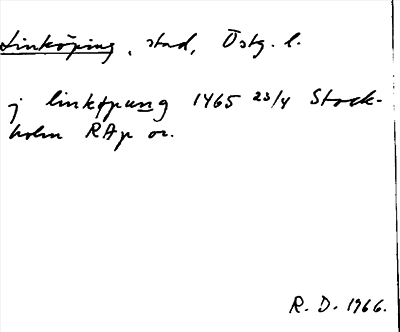 Linköping, stad, Östg. l.
j linkøpung 1465 23/4 Stock-
holm RAp or.
R. D. 1966.